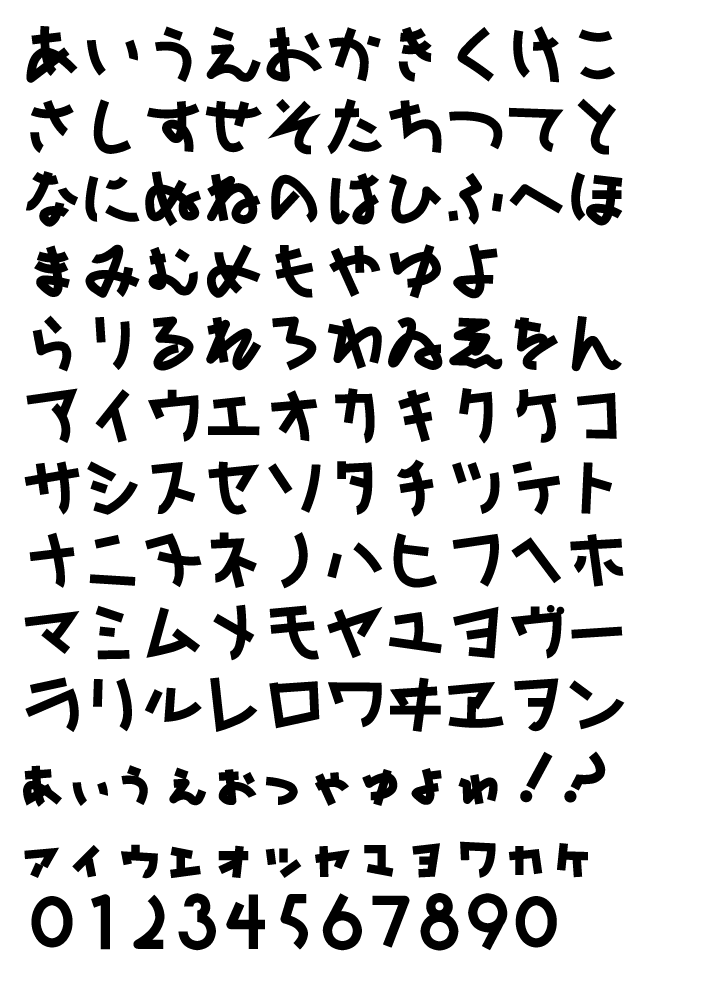 あいうえおかきくけこ
さしすせそたちつてと
なにぬねのはひふへほ
まみむめもやゆよ
らりるれろわゐゑをん
アイウエオカキクケコ
サシスセソタチツテト
ナニヌネノハヒフヘホ
マミムメモヤユヨヴー
ラリルレロワヰヱヲン
ぁぃぅぇぉっゃゅょゎ!?
ァィゥェォッャュョヮヵヶ
01234567890